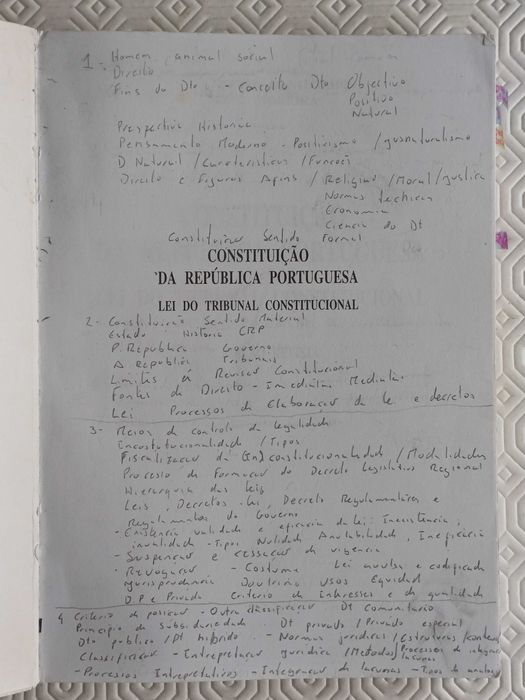 1 - Homem animal social
Direito
Fins do Dto - Conceito Dto Objectivo
Positivo
Natural
Perspectiva Historica
Pensamento Moderno - Positivismo / jusnaturalismo
D Natural / Caracteristicas / Funções
Direito e Figuras Afins / Religião / Moral / justiça
Normas tecnicas
Economia
Ciencia do Dt
Constituição Sentido Formal
CONSTITUIÇÃO
DA REPÚBLICA PORTUGUESA
LEI DO TRIBUNAL CONSTITUCIONAL
2 - Constituição Sentido Material
Estado Historia CRP
P. Republica Governo
A. Republica Tribunais
Limites á Revisão Constitucional
Fontes do Direito - Imediatas Mediatas
Lei Processos de Elaboração de lei e decretos
3 - Meios de controlo da legalidade
Incostitucionalidade / Tipos
Fiscalização da (in)constitucionalidade / Modalidades
Processo de Formação do Decreto Legislativo Regional
Hierarquia das leis
Leis, Decretos-lei, Decreto Regulamentares e
Regulamentos do Governo
- Existencia validade e eficacia da lei: Inexistencia,
invalidade - Tipos Nulidade Anulabilidade, Ineficacia
- Suspensão e cessação da vigencia
- Revogação - Costume Lei avulsa e codificada
jurisprudencia Doutrina usos Equidade
D P e Privado Criterio de Interesses e da qualidade
4 Criterio da posição - Outra classificação Dt Comunitario
Principio da Subsidariedade Dt privado / Privado especial
Dto publico / Dt hibrido - Normas juridicas / Estruturas
Classificação - Interpretação juridica / Metodos / Processos de integração
lacunas
- Processos Intrepretativos - Integração de lacunas - Tipos de